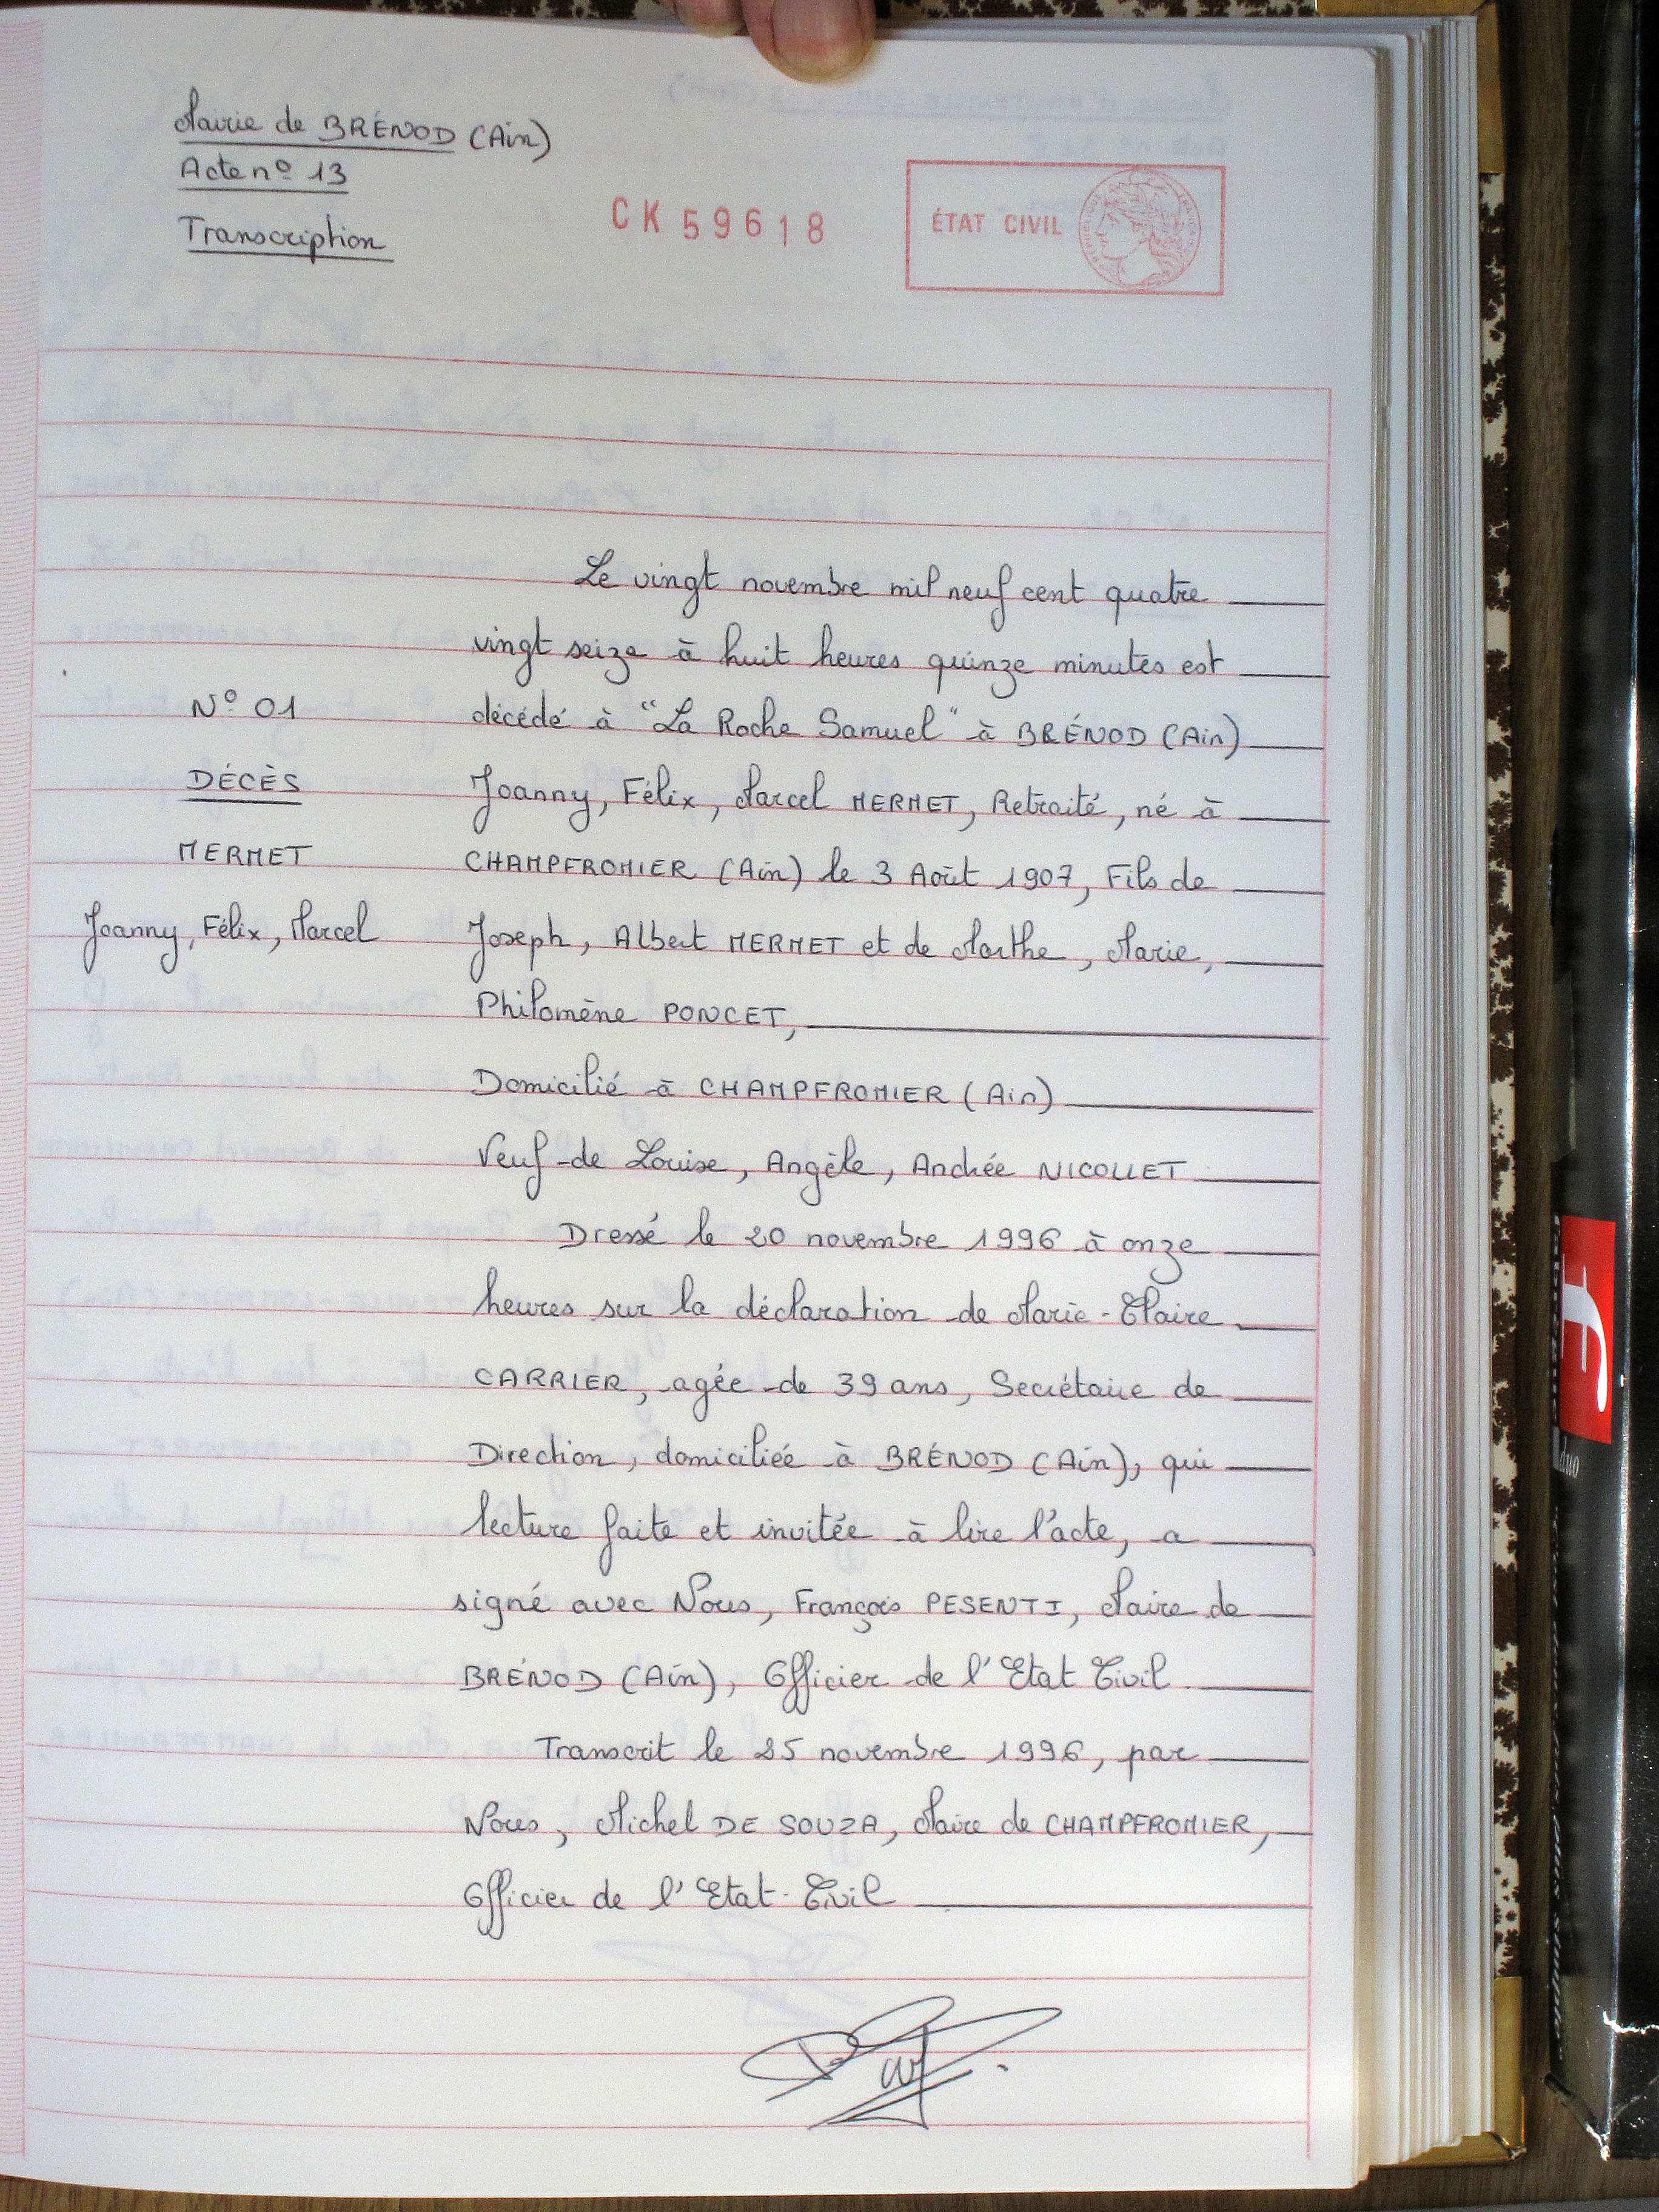 Mairie de BRÉNOD (Ain)
Acte nº 13
Transcription
CK 59618
ÉTAT CIVIL
Le vingt novembre mil neuf cent quatre
vingt seize à huit heures quinze minutes est
décédé à "La Roche Samuel" à BRÉNOD (Ain)
Joanny, Félix, Marcel MERMET, Retraité, né à
CHAMPFROMIER (Ain) le 3 Août 1907, Fils de
Joseph, Albert MERMET et de Marthe, Marie,
Philomène PONCET,
Domicilié à CHAMPFROMIER (Ain)
Veuf de Louise, Angèle, Andrée NICOLLET
Dressé le 20 novembre 1996 à onze
heures sur la déclaration de Marie-Claire
CARRIER, agée de 39 ans, Secrétaire de
Direction, domiciliée à BRÉNOD (Ain), qui
lecture faite et invitée à lire l'acte, a
signé avec Nous, François PESENTI, Maire de
BRÉNOD (Ain), Officier de l'Etat Civil
Transcrit le 25 novembre 1996, par
Nous, Michel DE SOUZA, Maire de CHAMPFROMIER,
Officier de l'Etat-Civil
Nº 01
DÉCÈS
MERMET
Joanny, Félix, Marcel
duo